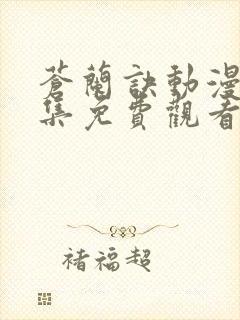 蒼蘭訣動漫
集免費觀看
褚福超